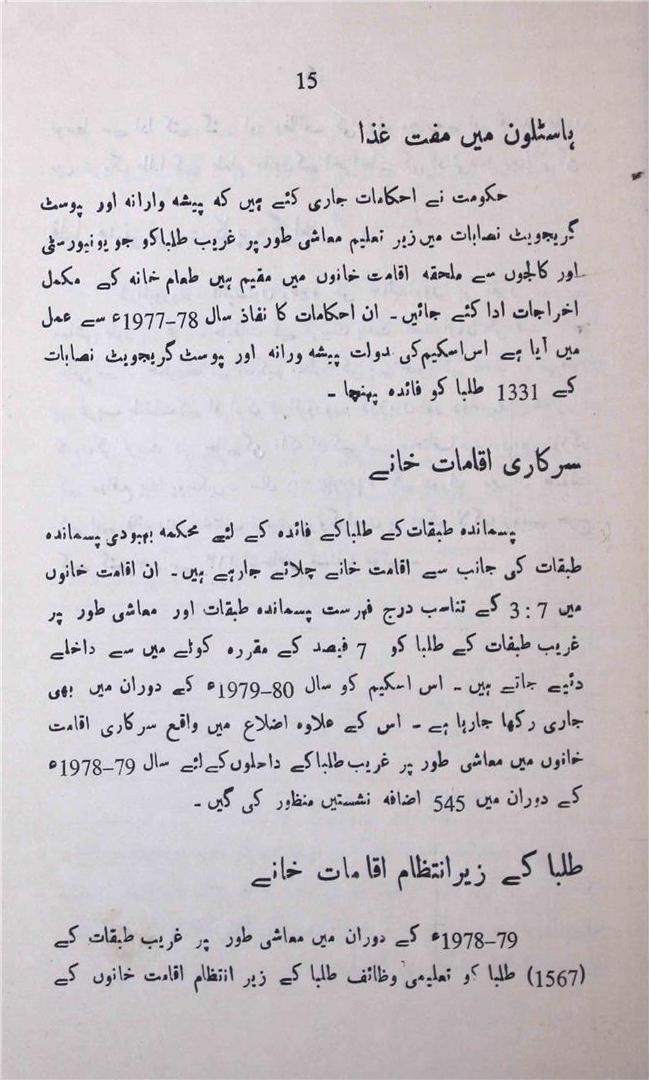 15
ہاسٹلون میں مفت غذا
حکومت نے احکامات جاری کئے ہیں کہ پیشہ وارانہ اور پوسٹ
گریجویٹ نصابات میں زیر تعلیم معاشی طور پر غریب طلبا کو جو یونیورسٹی
اور کالجوں سے ملحقہ اقامت خانوں میں مقیم ہیں طعام خانہ کے مکمل
اخراجات ادا کئے جائیں۔ ان احکامات کا نفاذ سال 78–1977ء سے عمل
میں آیا ہے اس اسکیم کی دولت پیشہ ورانہ اور پوسٹ گریجویٹ نصابات
کے 1331 طلبا کو فائدہ پہنچا۔
سرکاری اقامات خانے
پسماندہ طبقات کے طلبا کے فائدہ کے لئے محکمہ بہبودی پسماندہ
طبقات کی جانب سے اقامت خانے چلائے جارہے ہیں۔ ان اقامت خانوں
میں 7 : 3 کے تناسب درج فہرست پسماندہ طبقات اور معاشی طور پر
غریب طبقات کے طلبا کو 7 فیصد کے مقررہ کوٹے میں سے داخلے
دئیے جاتے ہیں۔ اس اسکیم کو سال 80–1979ء کے دوران میں بھی
جاری رکھا جارہا ہے۔ اس کے علاوہ اضلاع میں واقع سرکاری اقامت
خانوں میں معاشی طور پر غریب طلبا کے داخلوں کے لئے سال 79–1978ء
کے دوران میں 545 اضافہ نشستیں منظور کی گیں۔
طلبا کے زیر انتظام اقامات خانے
79–1978ء کے دوران میں معاشی طور پر غریب طبقات کے
(1567) طلبا کو تعلیمی وظائف طلبا کے زیر انتظام اقامت خانوں کے